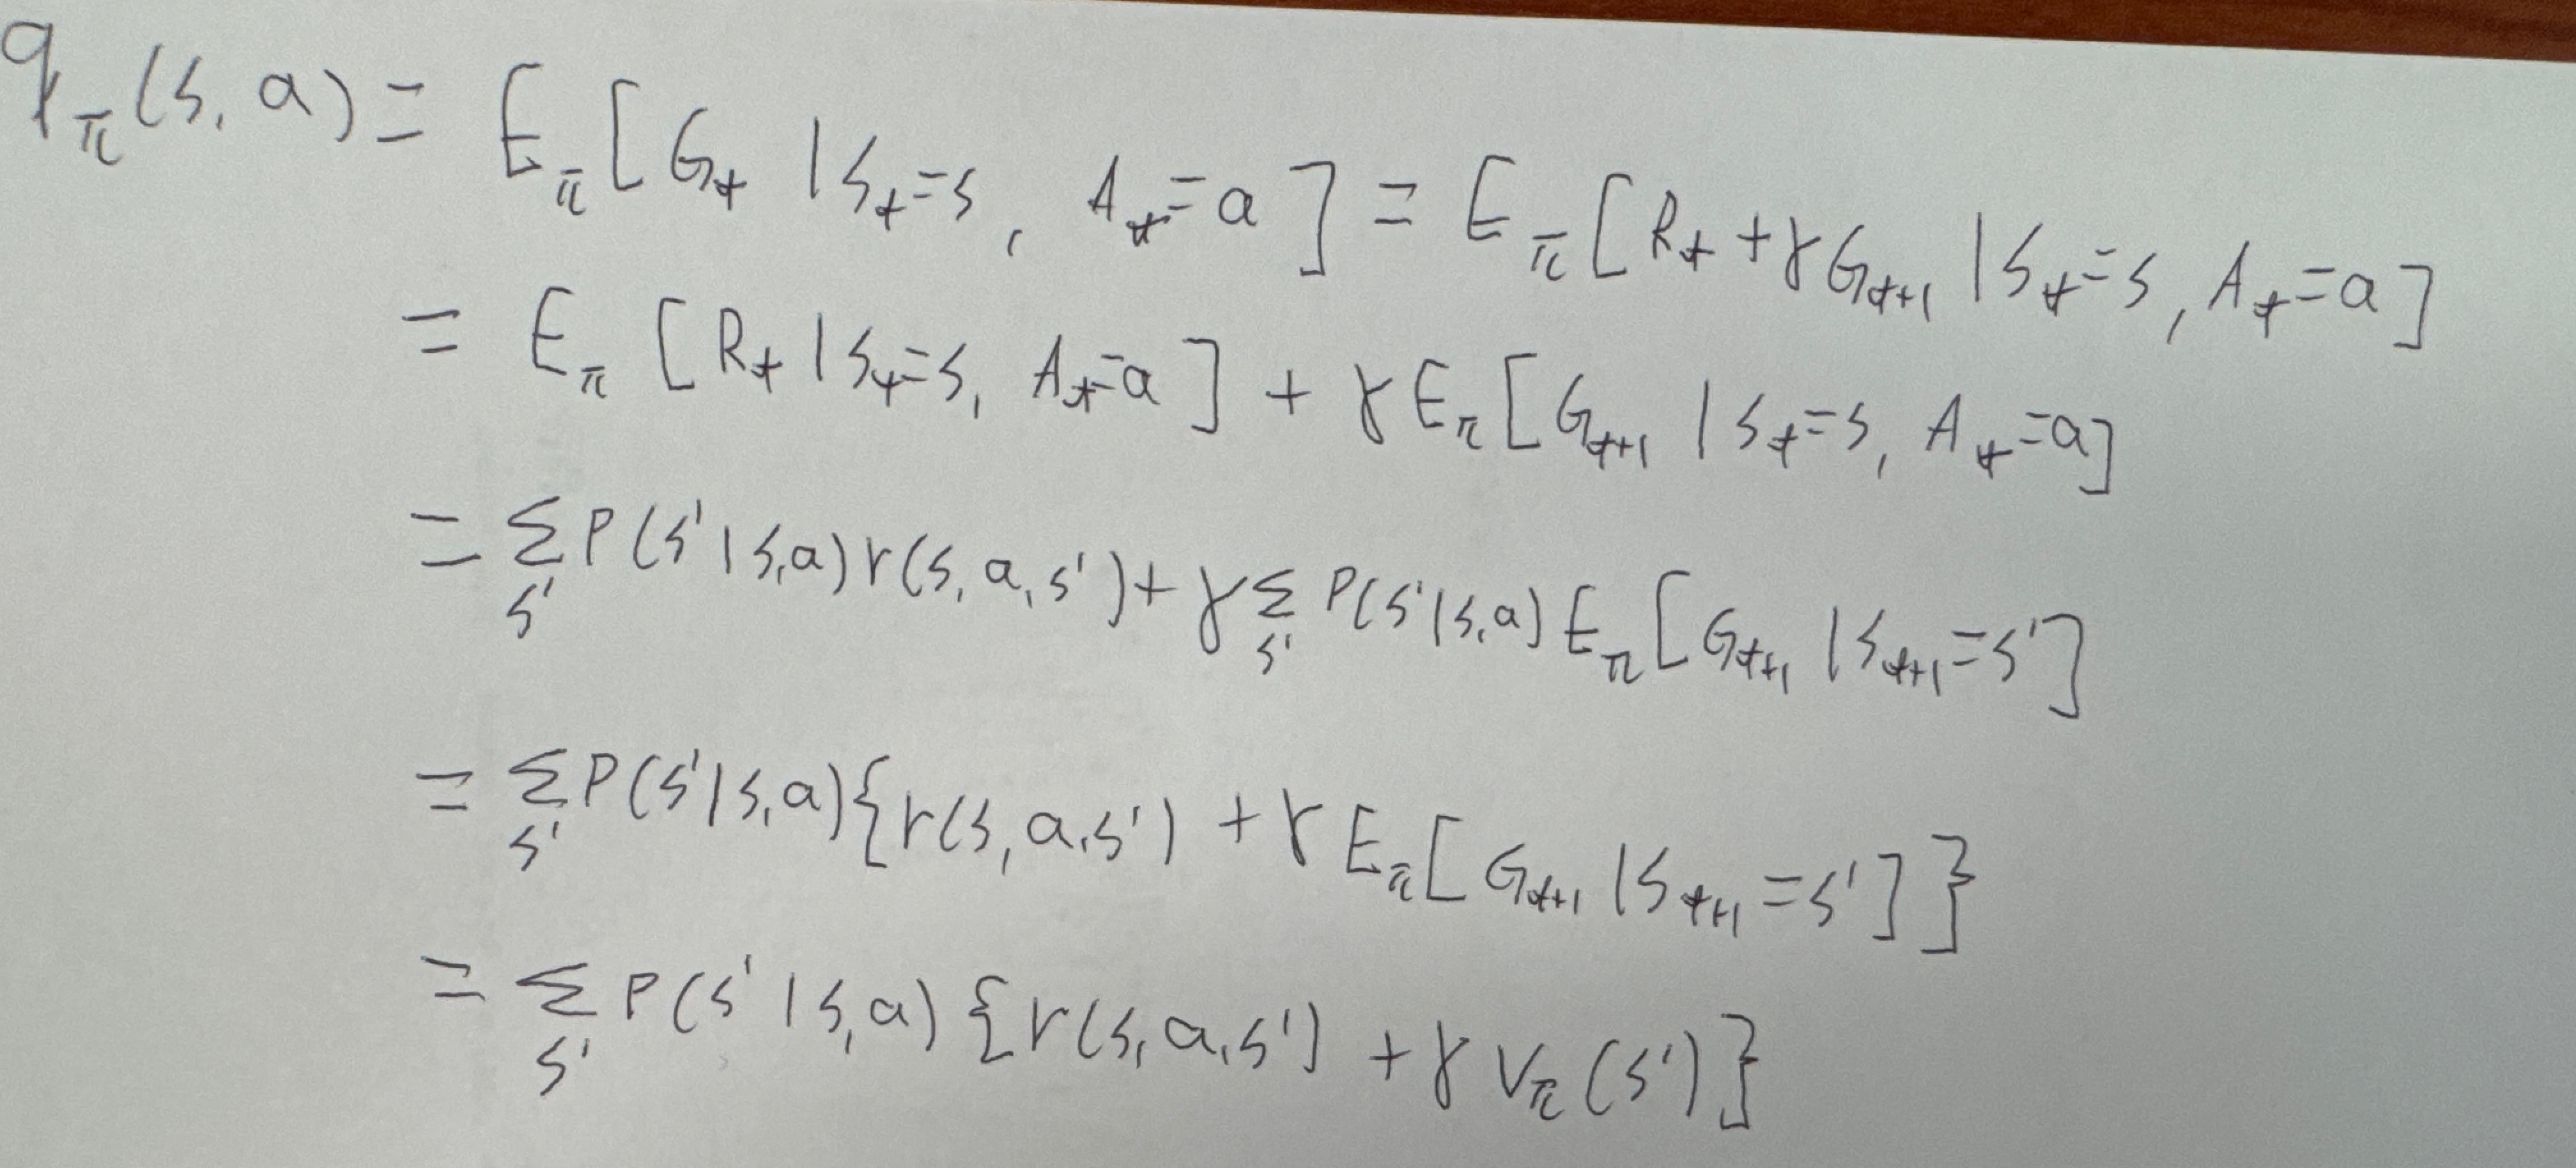 q_π(s, a) = E_π[G_t | S_t=s, A_t=a] = E_π[R_t + γG_{t+1} | S_t=s, A_t=a]
= E_π[R_t | S_t=s, A_t=a] + γE_π[G_{t+1} | S_t=s, A_t=a]
= Σ_{s'} P(s' | s, a) r(s, a, s') + γ Σ_{s'} P(s' | s, a) E_π[G_{t+1} | S_{t+1}=s']
= Σ_{s'} P(s' | s, a) {r(s, a, s') + γ E_π[G_{t+1} | S_{t+1}=s']}
= Σ_{s'} P(s' | s, a) {r(s, a, s') + γ V_π(s')}